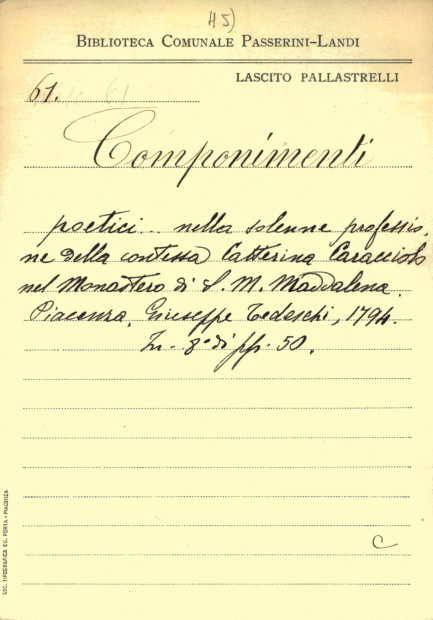 45)
BIBLIOTECA COMUNALE PASSERINI-LANDI
LASCITO PALLASTRELLI
61.
Componimenti
poetici .. nella solenne professio,
ne della contessa Catterina Caracciolo
nel Monastero di S. M. Maddalena.
Piacenza, Giuseppe Tedeschi, 1794.
In-8° di pp. 50.
C
SOC. TIPOGRAFICA ED. PORTA - PIACENZA